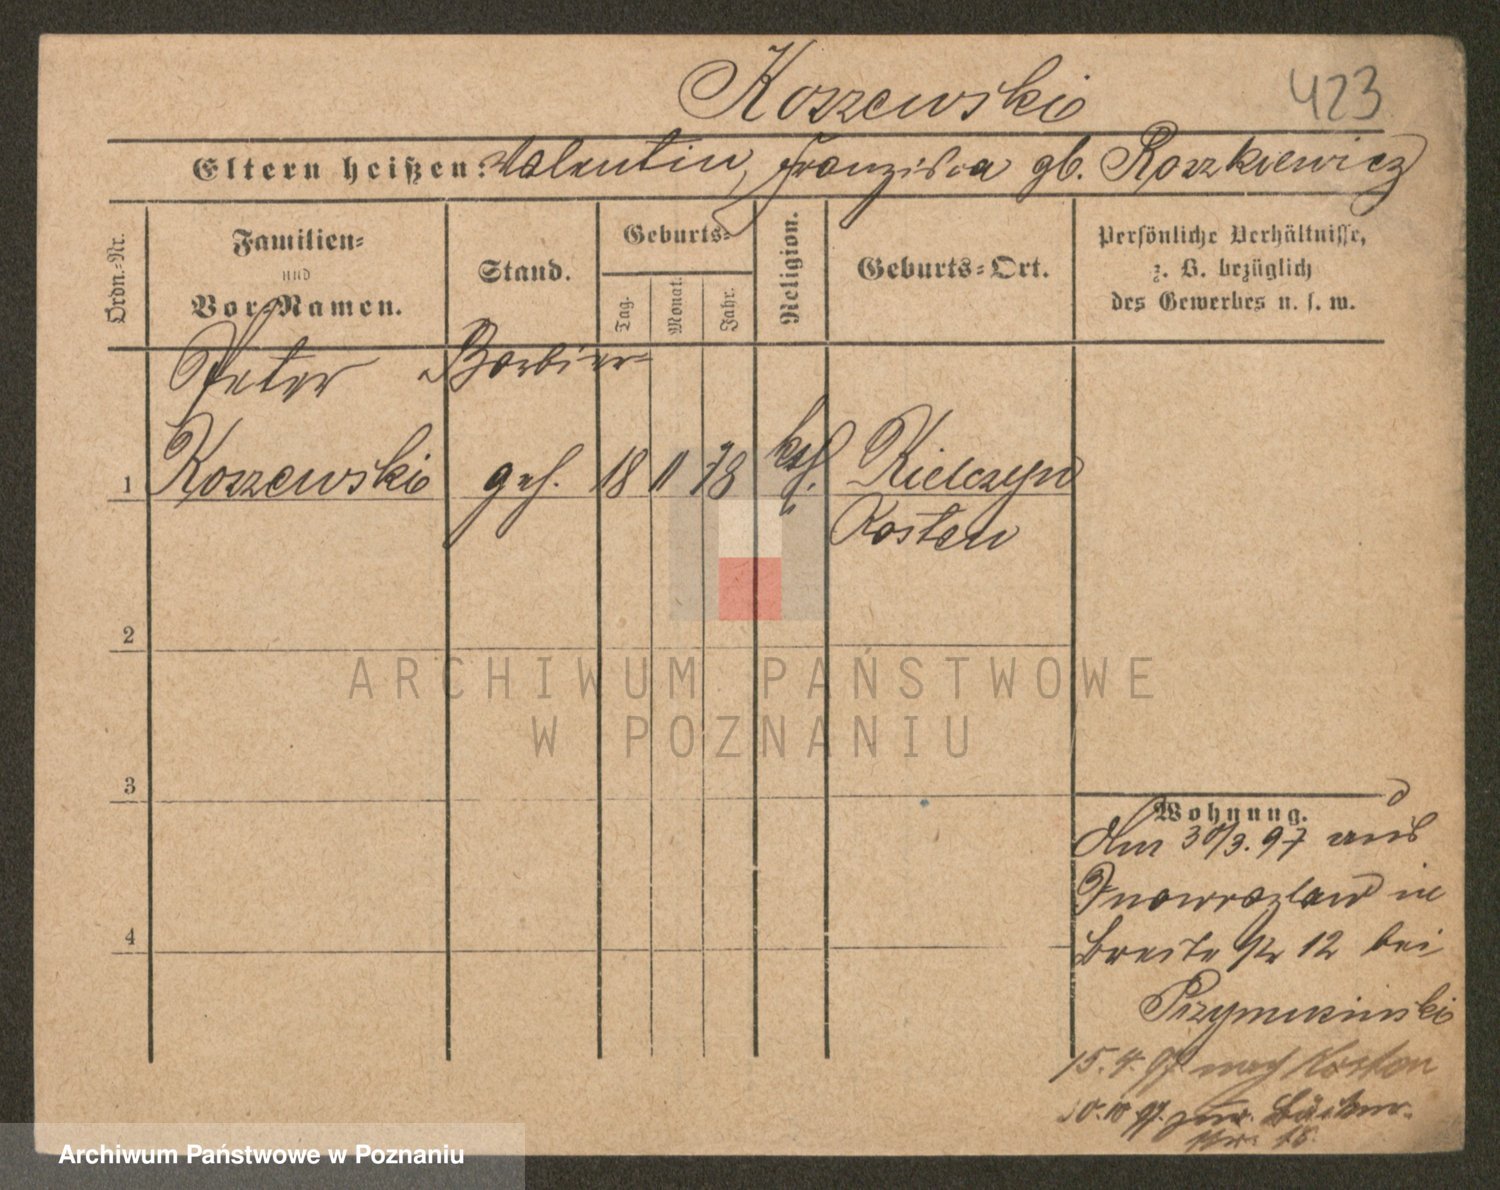 Koszewski 423
Eltern heißen: Valentin, Franziska gb. Roszkiewicz
Ordn.-Nr.
Familien-
und
Vor-Namen.
Stand.
Geburts-
Tag.
Monat.
Jahr.
Religion.
Geburts-Ort.
Persönliche Verhältnisse,
z. B. bezüglich
des Gewerbes u. s. w.
Peter Barbier-
1 Koszewski geh. 18 11 78 kath. Kielczyn
Kosten
2
ARCHIWUM PAŃSTWOWE
W POZNANIU
3
Wohnung.
Am 30/3. 97 aus
Inowrazlaw in
Breite Str 12 bei
4
15.4.97 nach Kosten
10.10 97.
Str. 18.
Archiwum Państwowe w Poznaniu